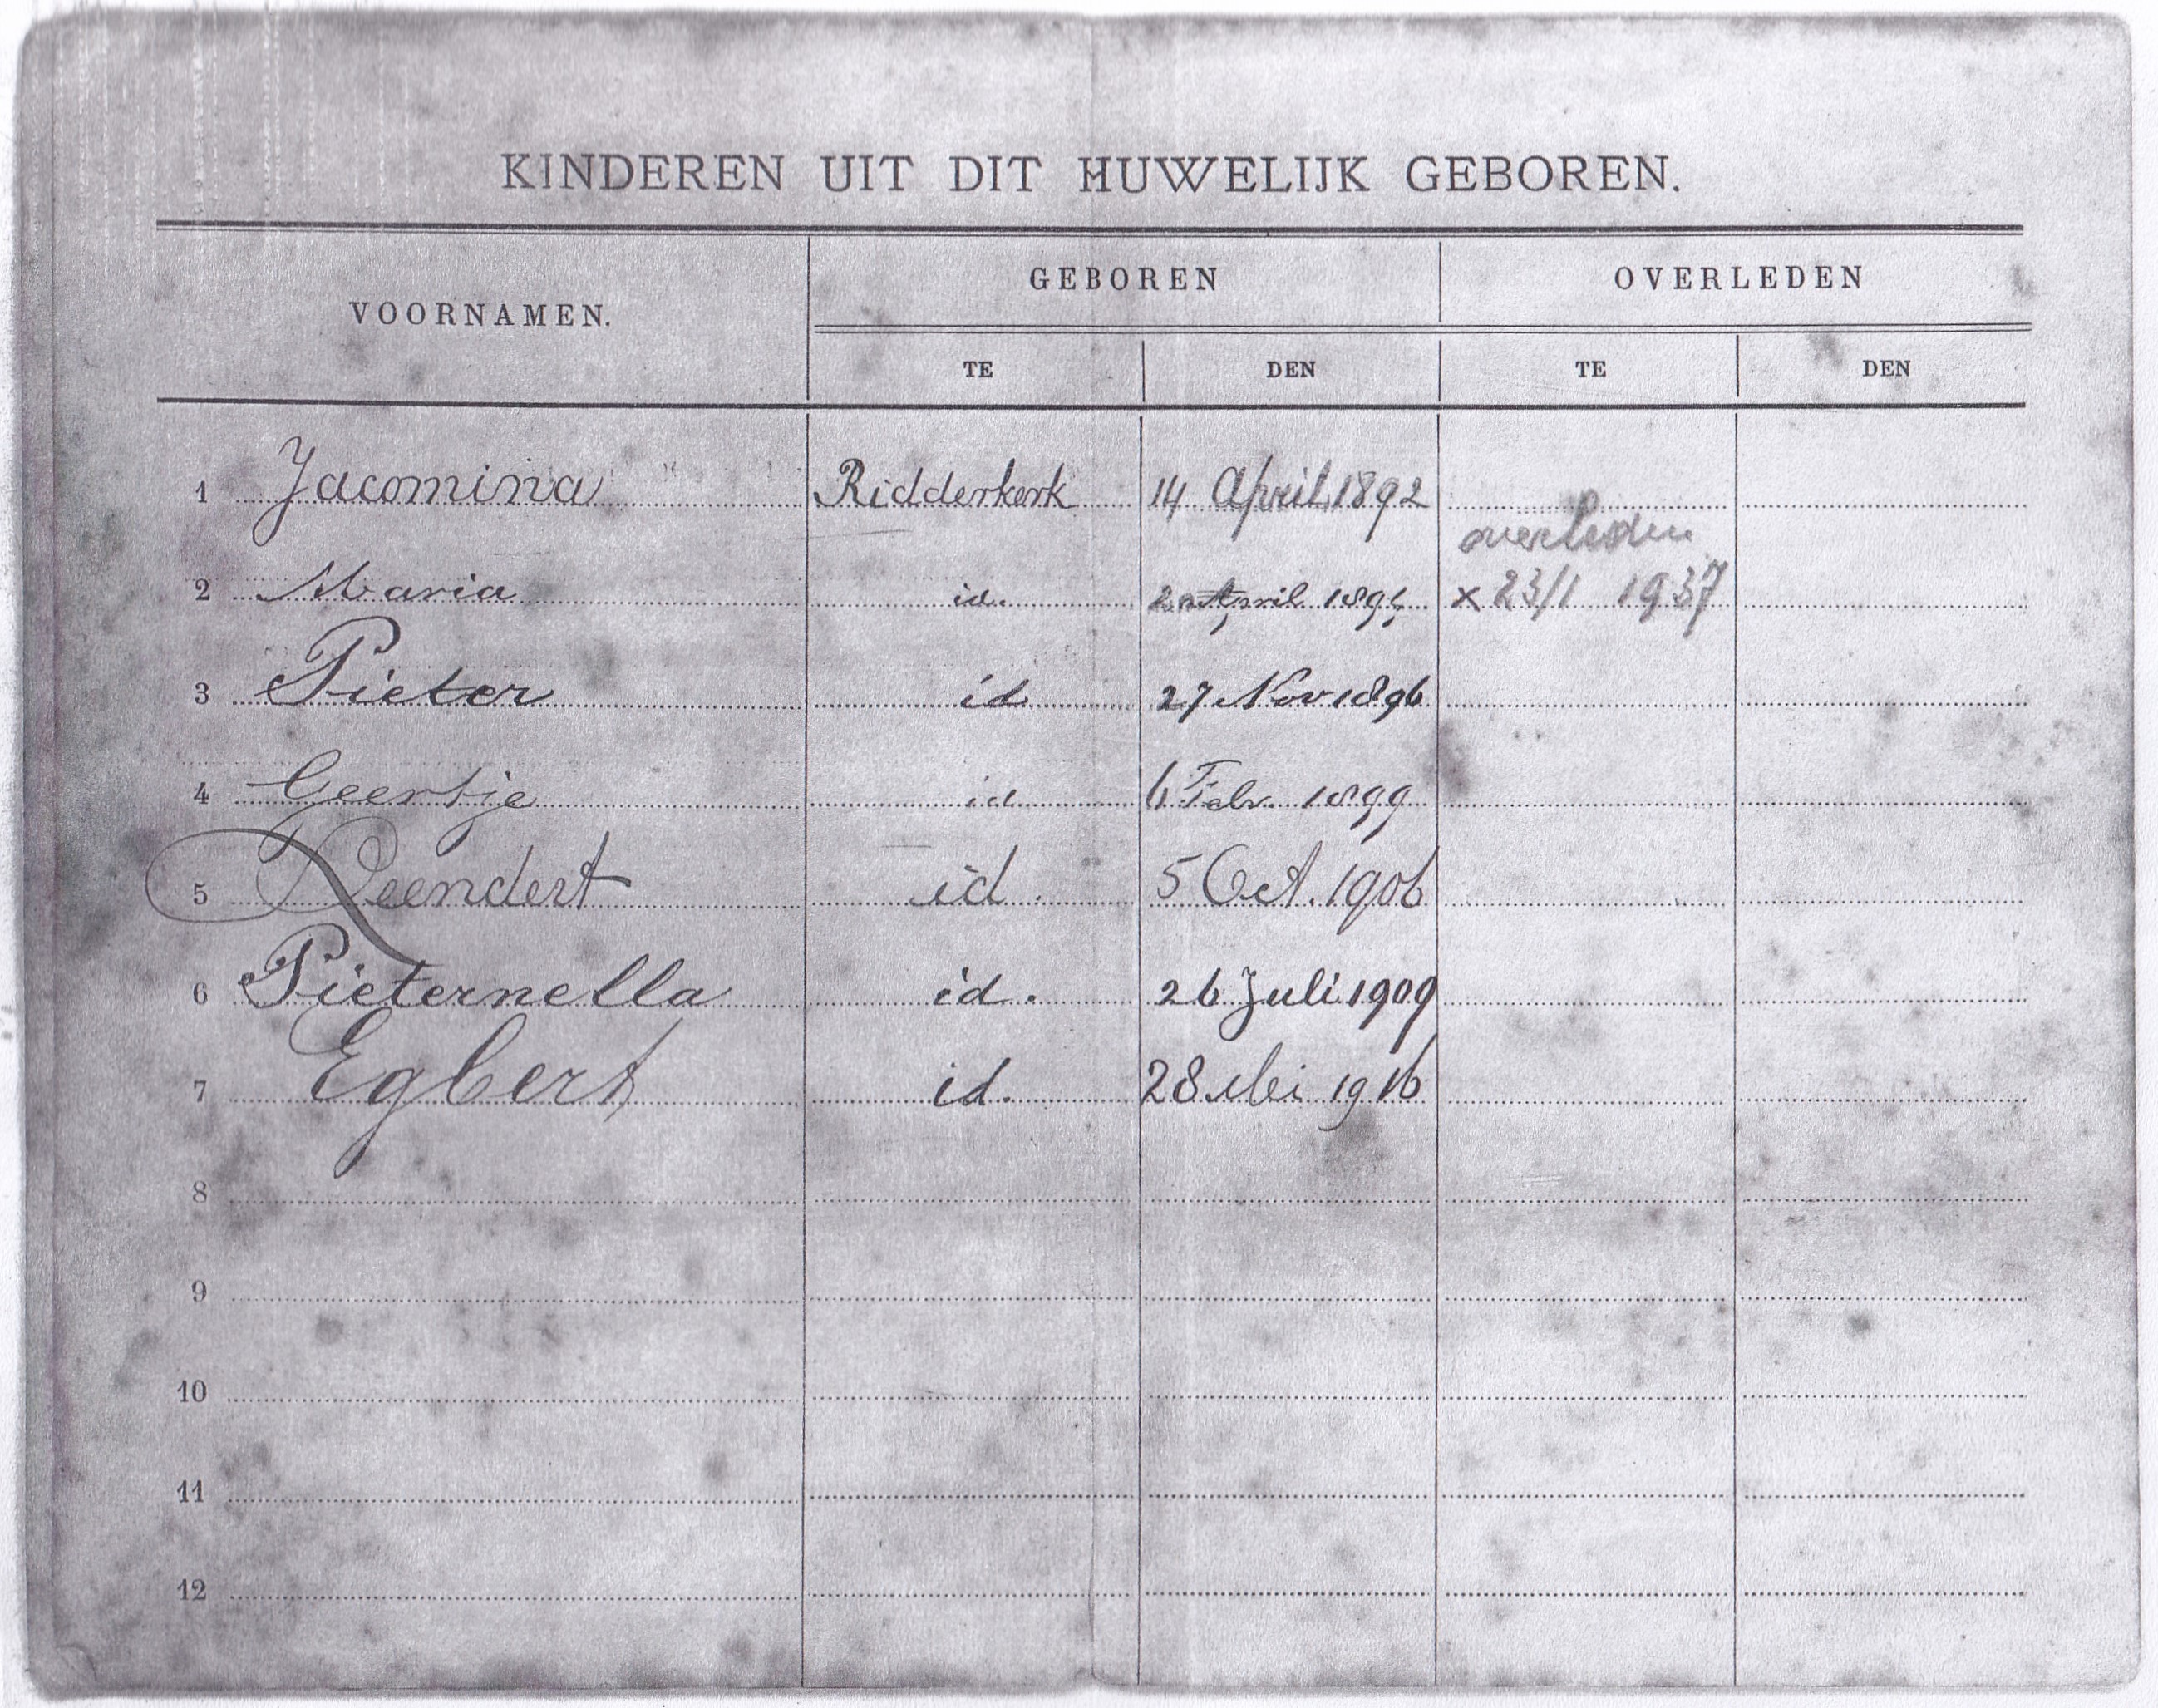 KINDEREN UIT DIT HUWELIJK GEBOREN.
VOORNAMEN. GEBOREN OVERLEDEN
TE DEN TE DEN
1 Jacomina Ridderkerk 14 April 1892
overleden
2 Maria id. April x 23/1 1937
3 Pieter id 27 Nov 1896
4 Geertje id 6 Febr. 1899
5 Leendert id. 5 Oct. 1906
6 Pieternella id. 26 Juli 1909
7 Egbert id. 28 Mei 1916
8
9
10
11
12